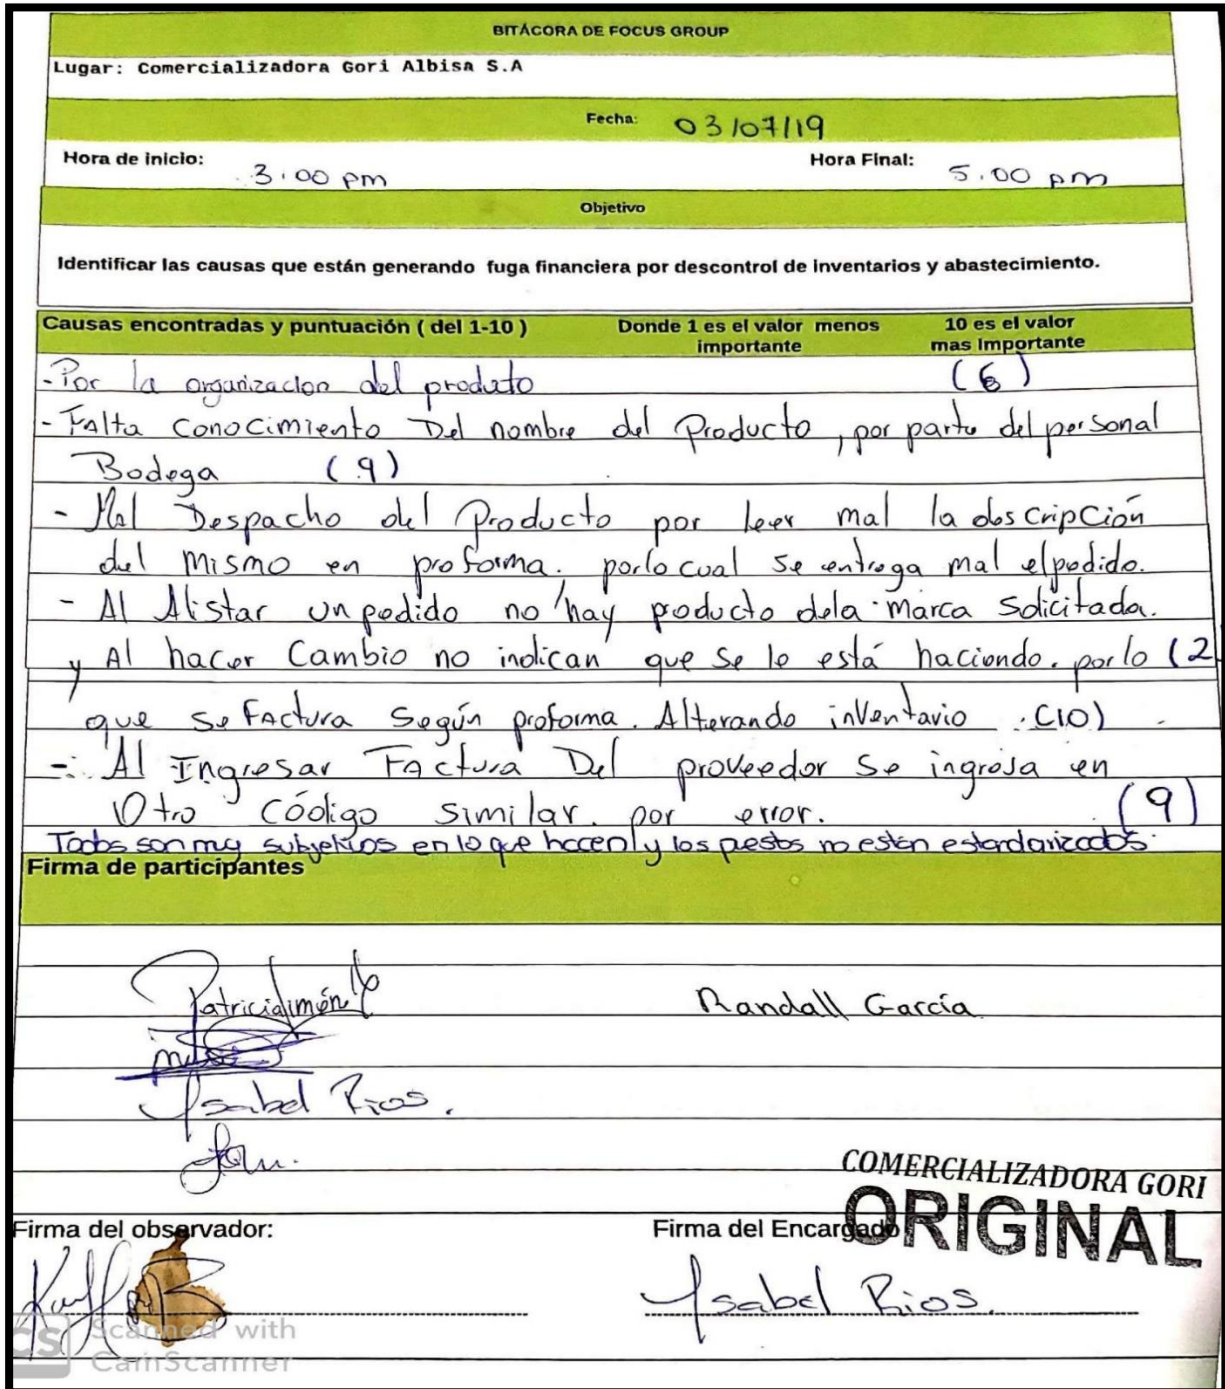 BITÁCORA DE FOCUS GROUP
Lugar: Comercializadora Gori Albisa S.A
Fecha: 03/07/19
Hora de inicio: 3.00 pm Hora Final: 5.00 pm
Objetivo
Identificar las causas que están generando fuga financiera por descontrol de inventarios y abastecimiento.
Causas encontradas y puntuación ( del 1-10 ) Donde 1 es el valor menos importante 10 es el valor mas Importante
- Por la organizacion del producto (6)
- Falta Conocimiento Del nombre del Producto, por parte del personal
Bodega (9)
- Mal Despacho del Producto por leer mal la descripción
del mismo en proforma. por lo cual se entrega mal el pedido.
- Al Alistar un pedido no hay producto de la marca Solicitada.
y Al hacer Cambio no indican que se le está haciendo. por lo (2
que se Factura Según proforma. Alterando inventario. (10)
- Al Ingresar Factura Del proveedor se ingresa en
Otro Código similar. por error. (9)
Todos son muy subjetivos en lo que hacen y los puestos no estan estandarizados.
Firma de participantes
Randall García
Isabel Rios.
COMERCIALIZADORA GORI
ORIGINAL
Firma del observador: Firma del Encargado
Isabel Rios.
CS Scanned with
CamScanner